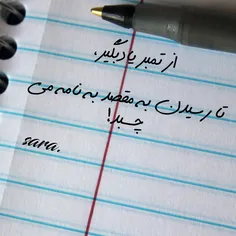 از تمبر یاد بگیر،
تا رسیدن به مقصد به نامه می
چسبد!
sara.